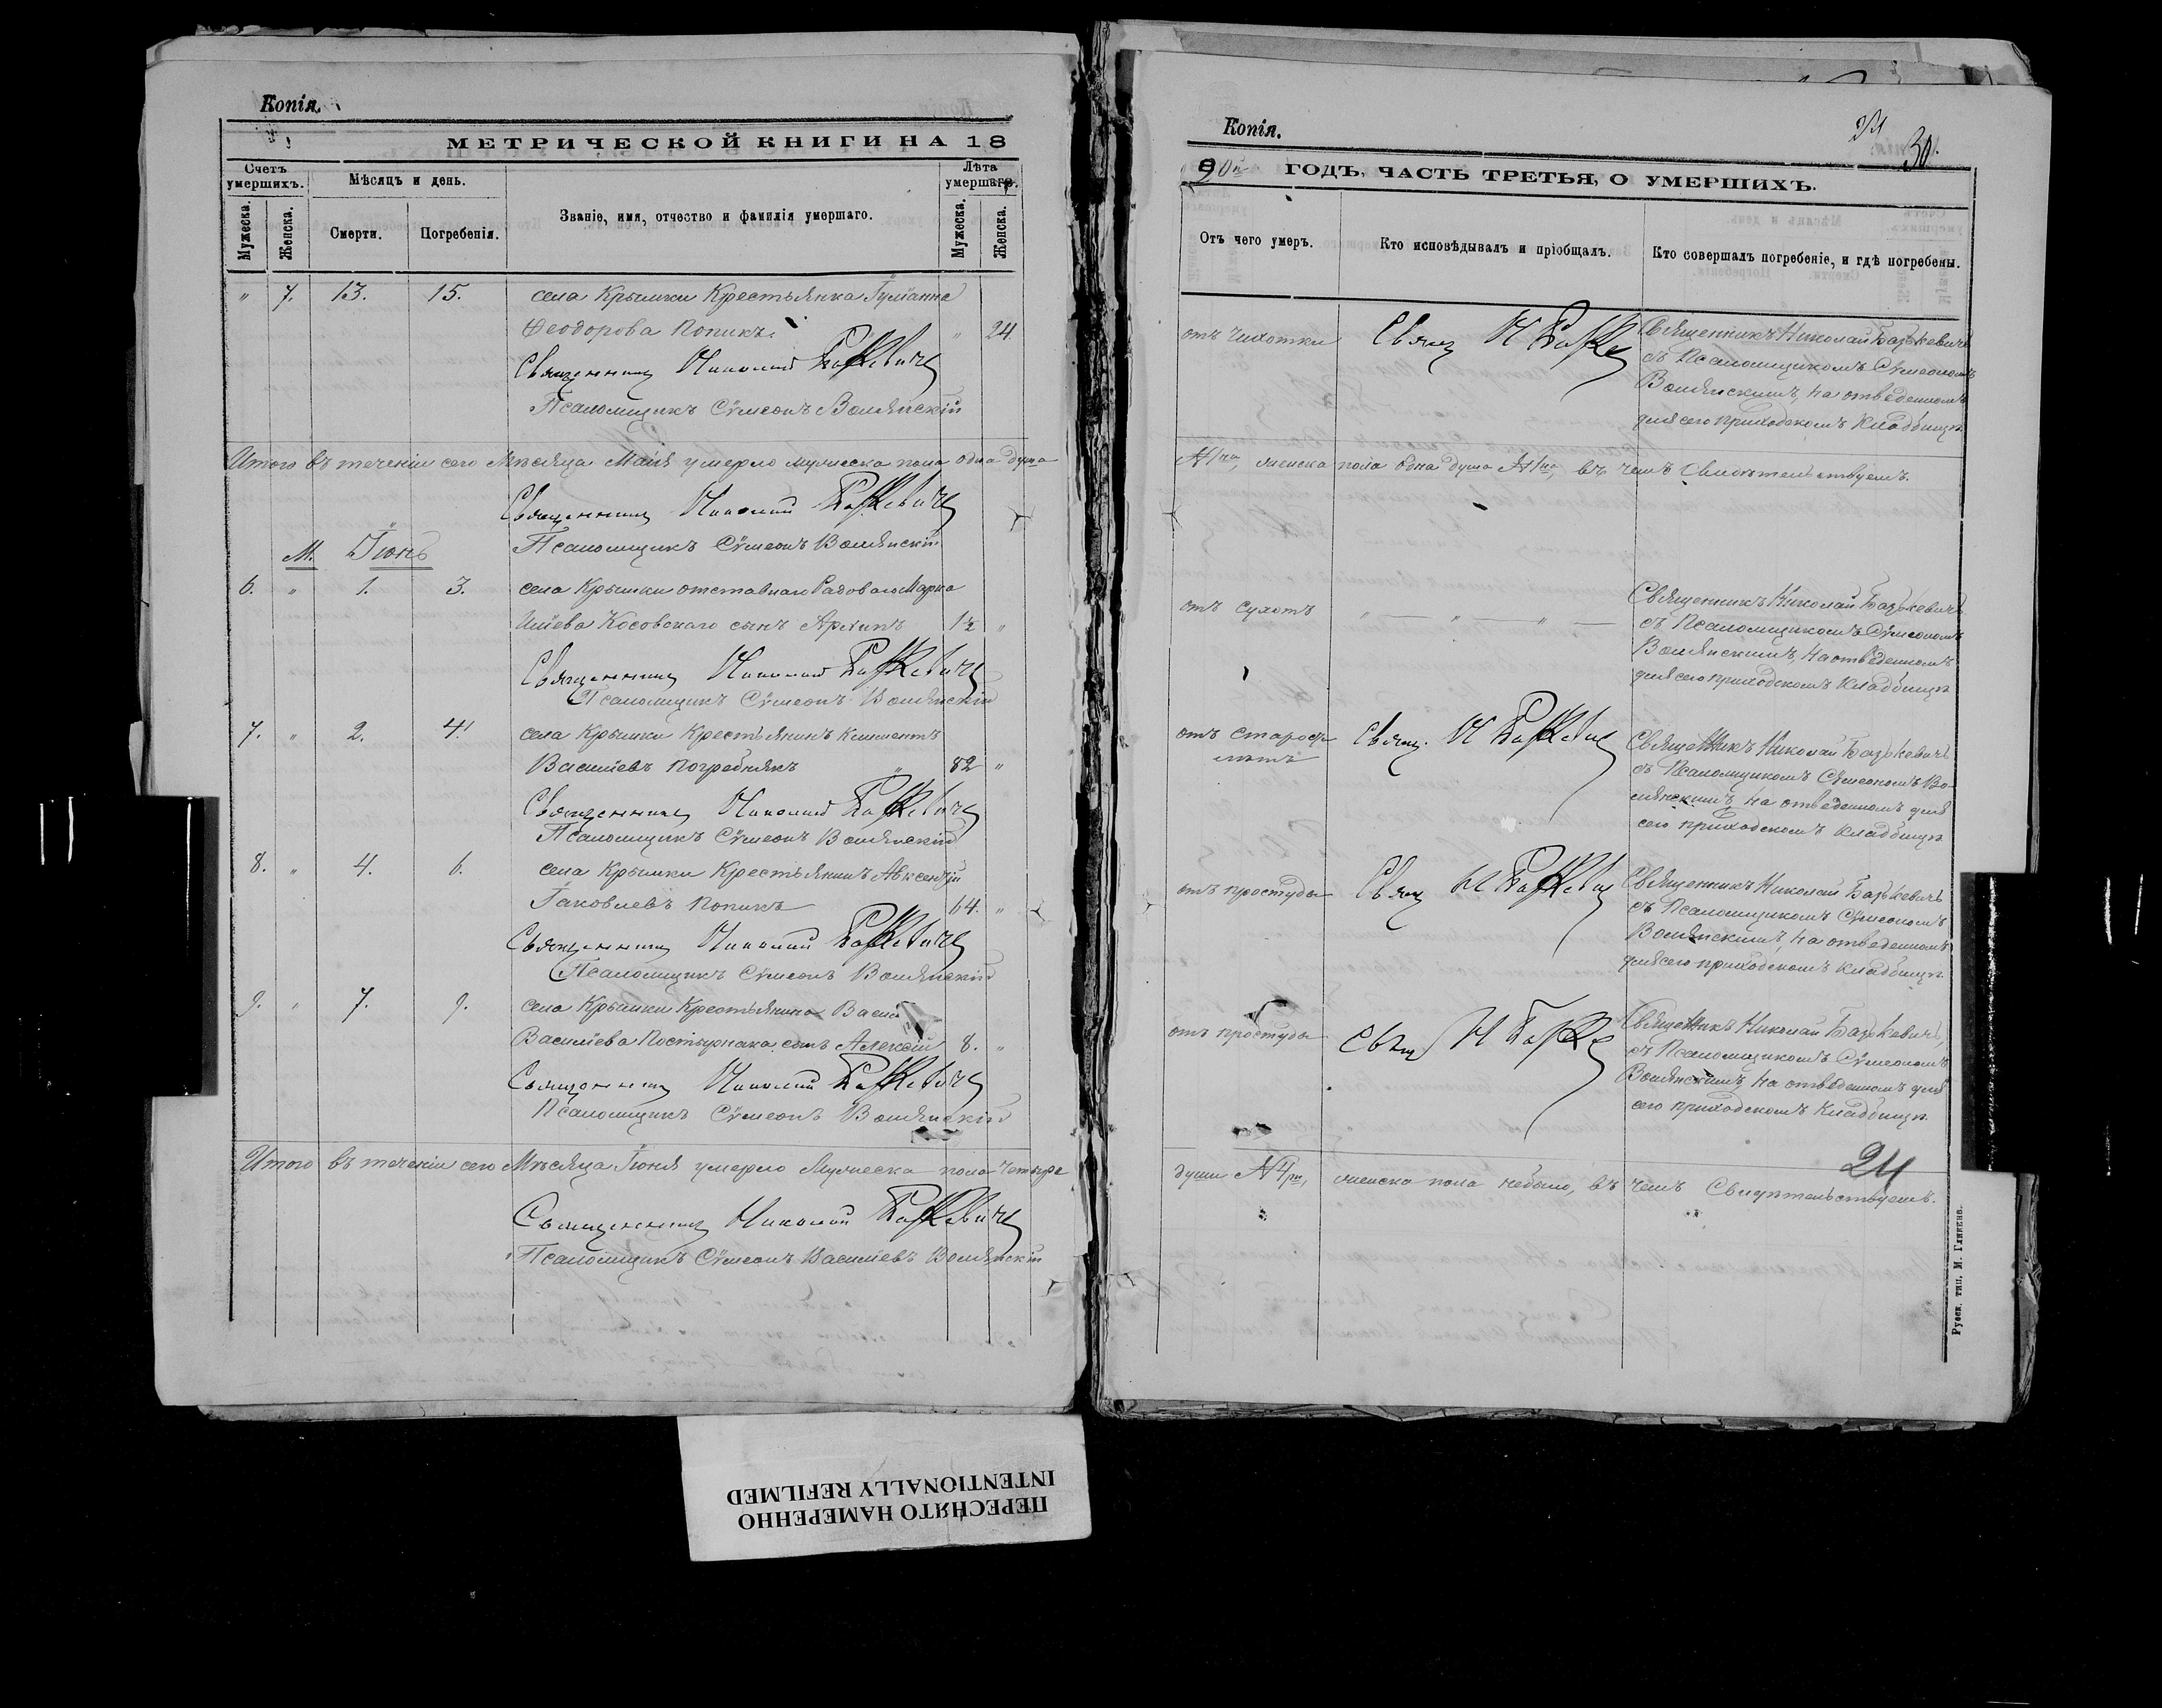 Копія.
МЕТРИЧЕСКОЙ КНИГИ НА 18
Счетъ умершихъ.
Мѣсяцъ и день.
Званіе, имя, отчество и фамилія умершаго.
Лѣта умершаго.
Мужеска.
Женска.
Смерти.
Погребенія.
Мужеска.
Женска.
" 7. 13. 15. села Крымки Крестьянка Іуліанна
Феодорова Попикъ. " 24.
Священникъ Николай Базькевичъ
Псаломщикъ Сѵмеонъ Волянскій
Итого въ теченіи сего Мѣсяца Маія умерло мужеска пола одна душа
Священникъ Николай Базькевичъ
Псаломщикъ Сѵмеонъ Волянскій
М. Іюнь
6. " 1. 3. села Крымки отставнаго Рядоваго Марка
Иліева Косовскаго сынъ Архипъ 1½ "
Священникъ Николай Базькевичъ
Псаломщикъ Сѵмеонъ Волянскій
7. " 2. 4. села Крымки Крестьянинъ Климентъ
Василіевъ Погребнякъ " 82 "
Священникъ Николай Базькевичъ
Псаломщикъ Сѵмеонъ Волянскій
8. " 4. 6. села Крымки Крестьянинъ Авксентій
Іаковлевъ Попикъ 64. "
Священникъ Николай Базькевичъ
Псаломщикъ Сѵмеонъ Волянскій
9. " 7. 9. села Крымки Крестьянина
Василіева сынъ Алексій 8. "
Священникъ Николай Базькевичъ
Псаломщикъ Сѵмеонъ Волянскій
Итого въ теченіи сего Мѣсяца Іюня умерло Мужеска пола четыре
Священникъ Николай Базькевичъ
Псаломщикъ Сѵмеонъ Василіевъ Волянскій
Копія.
30.
90й ГОДЪ, ЧАСТЬ ТРЕТЬЯ, О УМЕРШИХЪ.
Отъ чего умеръ.
Кто исповѣдывалъ и пріобщалъ.
Кто совершалъ погребеніе, и гдѣ погребены.
отъ чихотки Свящ Н Базьке Священникъ Николай Базькевичъ
съ Псаломщикомъ Сѵмеономъ
Волянскимъ, на отведенномъ
для сего приходскомъ Кладбищѣ
№ 1на, женска пола одна душа № 1на, въ чемъ Свидѣтельствуемъ.
отъ сухотъ " — " — " — Священникъ Николай Базькевичъ
съ Псаломщикомъ Сѵмеономъ
Волянскимъ, на отведенномъ
для сего приходскомъ Кладбищѣ
отъ старости Свящ. Н Базькевичъ Священникъ Николай Базькевичъ
лѣтъ съ Псаломщикомъ Сѵмеономъ Во-
лянскимъ, на отведенномъ для
сего приходскомъ Кладбищѣ
отъ простуды Свящ Н Базькевичъ Священникъ Николай Базькевичъ
съ Псаломщикомъ Сѵмеономъ
Волянскимъ, на отведенномъ
для сего приходскомъ Кладбищѣ
отъ простуды Свящ Н Базьке Священникъ Николай Базькевичъ,
съ Псаломщикомъ Сѵмеономъ
Волянскимъ, на отведенномъ для
сего приходскомъ Кладбищѣ
24
души № 4ри, женска пола небыло, въ чемъ Свидѣтельствуемъ.
Русск. тип. М. Гликена.
ПЕРЕСНЯТО НАМЕРЕННО
INTENTIONALLY REFILMED